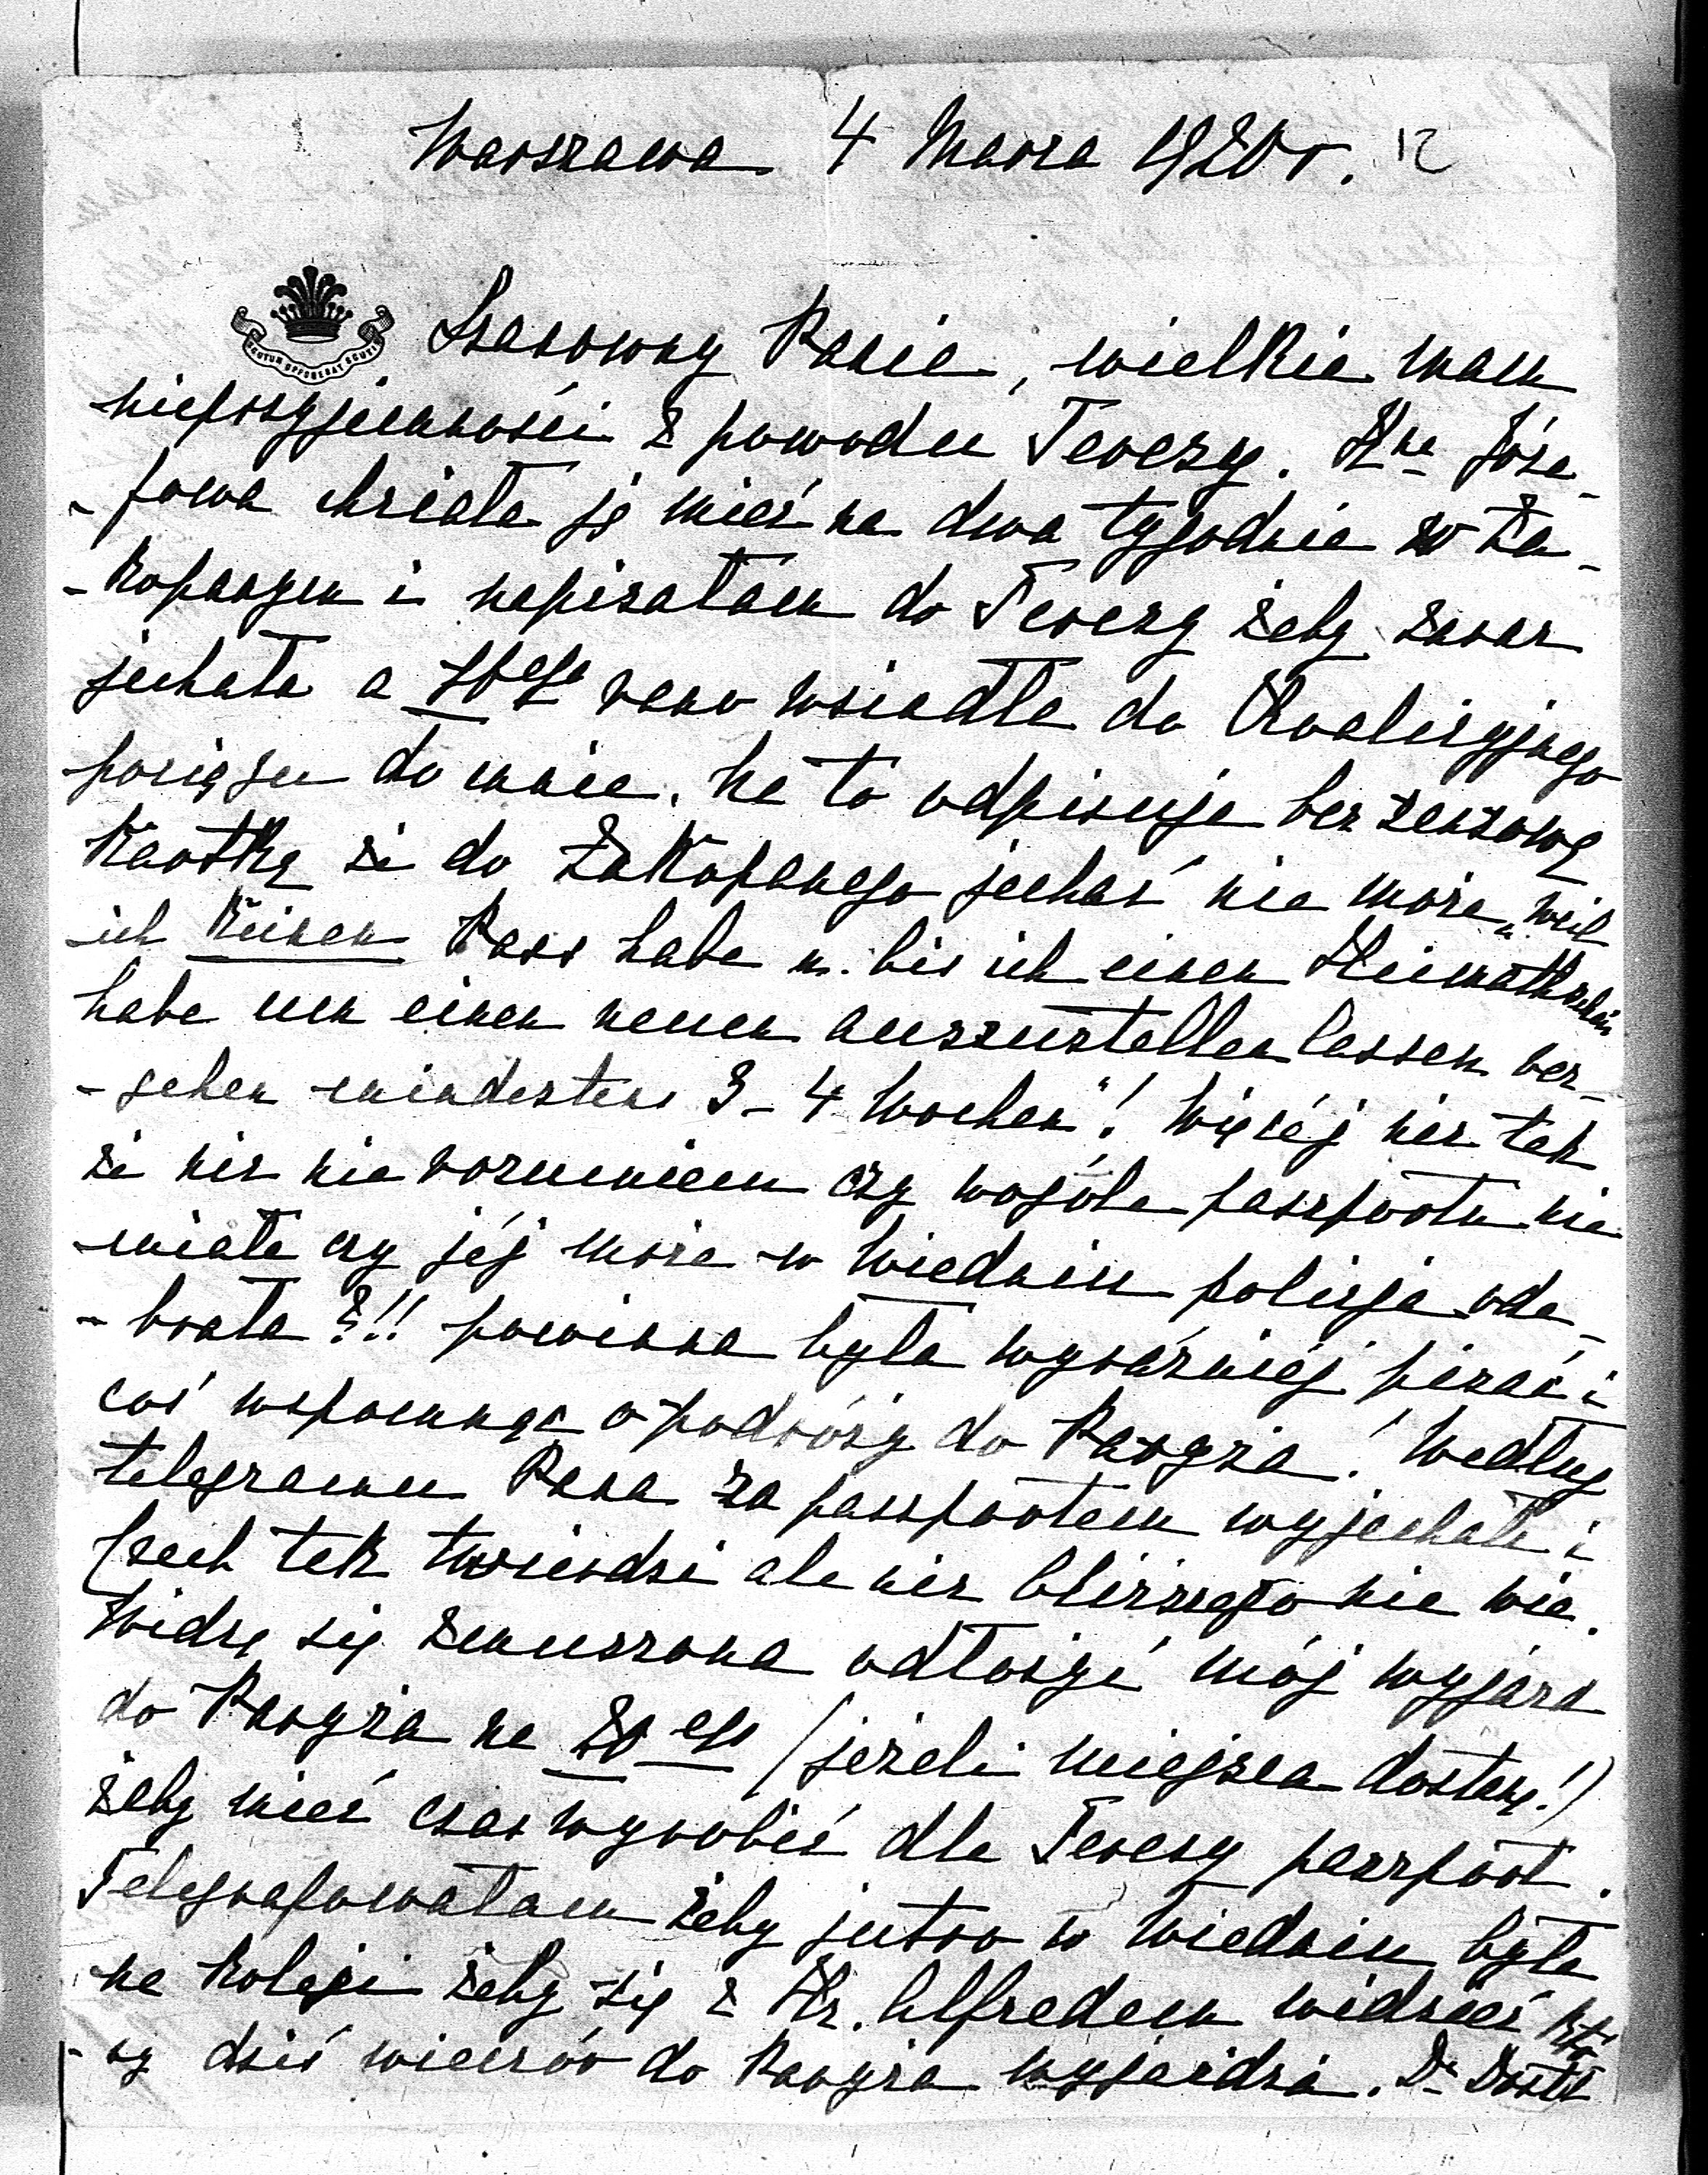 Warszawa 4 Marca 1920 r. 12
SCUTUM OPPONEBAT SCUTI
Szanowny Panie, wielkie mam
nieprzyjemności z powodu Teresy. Hna Józe-
-fowa chciała ję mieć na dwa tygodnie w Za-
-kopanym i napisałam do Teresy żeby zaraz
jechała a rano wsiadła do Koalicyjnego
pociągu do mnie. Na to odpisuje bez sensową
Kartkę że do Zakopanego jechać nie może „weil
ich keinen Pass habe u. bis ich einen Heimathschein
habe um einen neuen auszustellen lassen ver-
-gehen mindestens 3-4 Wochen"! Więcéj nic tak
że nic nie rozumiem czy wogóle paszportu nie
miała czy jéj może w Wiedniu policja ode-
-brała?!! powinna była wyraźniéj pisać i
coś wspomnąć o podróży do Paryża! Według
telegramu Pana za passportem wyjechała i
Pech tak twierdzi ale nic bliższego nie wie.
Widzę się zmuszona odłożyć mój wyjazd
do Paryża na 20ego (jeżeli miejsca dostanę!)
żeby mieć czas wyrobić dla Teresy paszport.
Telegrafowałam żeby jutro w Wiedniu była
na kolei żeby się z Hr. Alfredem widzieć któ-
-ry dziś wieczór do Paryża wyjeżdża. Dr Dostal